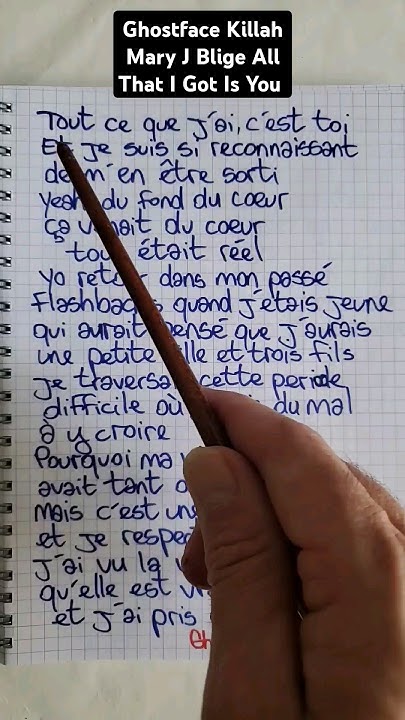 Ghostface Killah
Mary J Blige All
That I Got Is You
Tout ce que j'ai, c'est toi
Et je suis si reconnaissant
de m'en être sorti
yeah du fond du cœur
ça du cœur
tout était réel
yo retour dans mon passé
flashbacks quand j'étais jeune
qui aurait pensé que j'aurais
une petite fille et trois fils
je traversais cette periode
difficile où du mal
à y croire
Pourquoi ma
avait tant
Mais c'est une
et je
j'ai vu la
qu'elle est
et j'ai pris